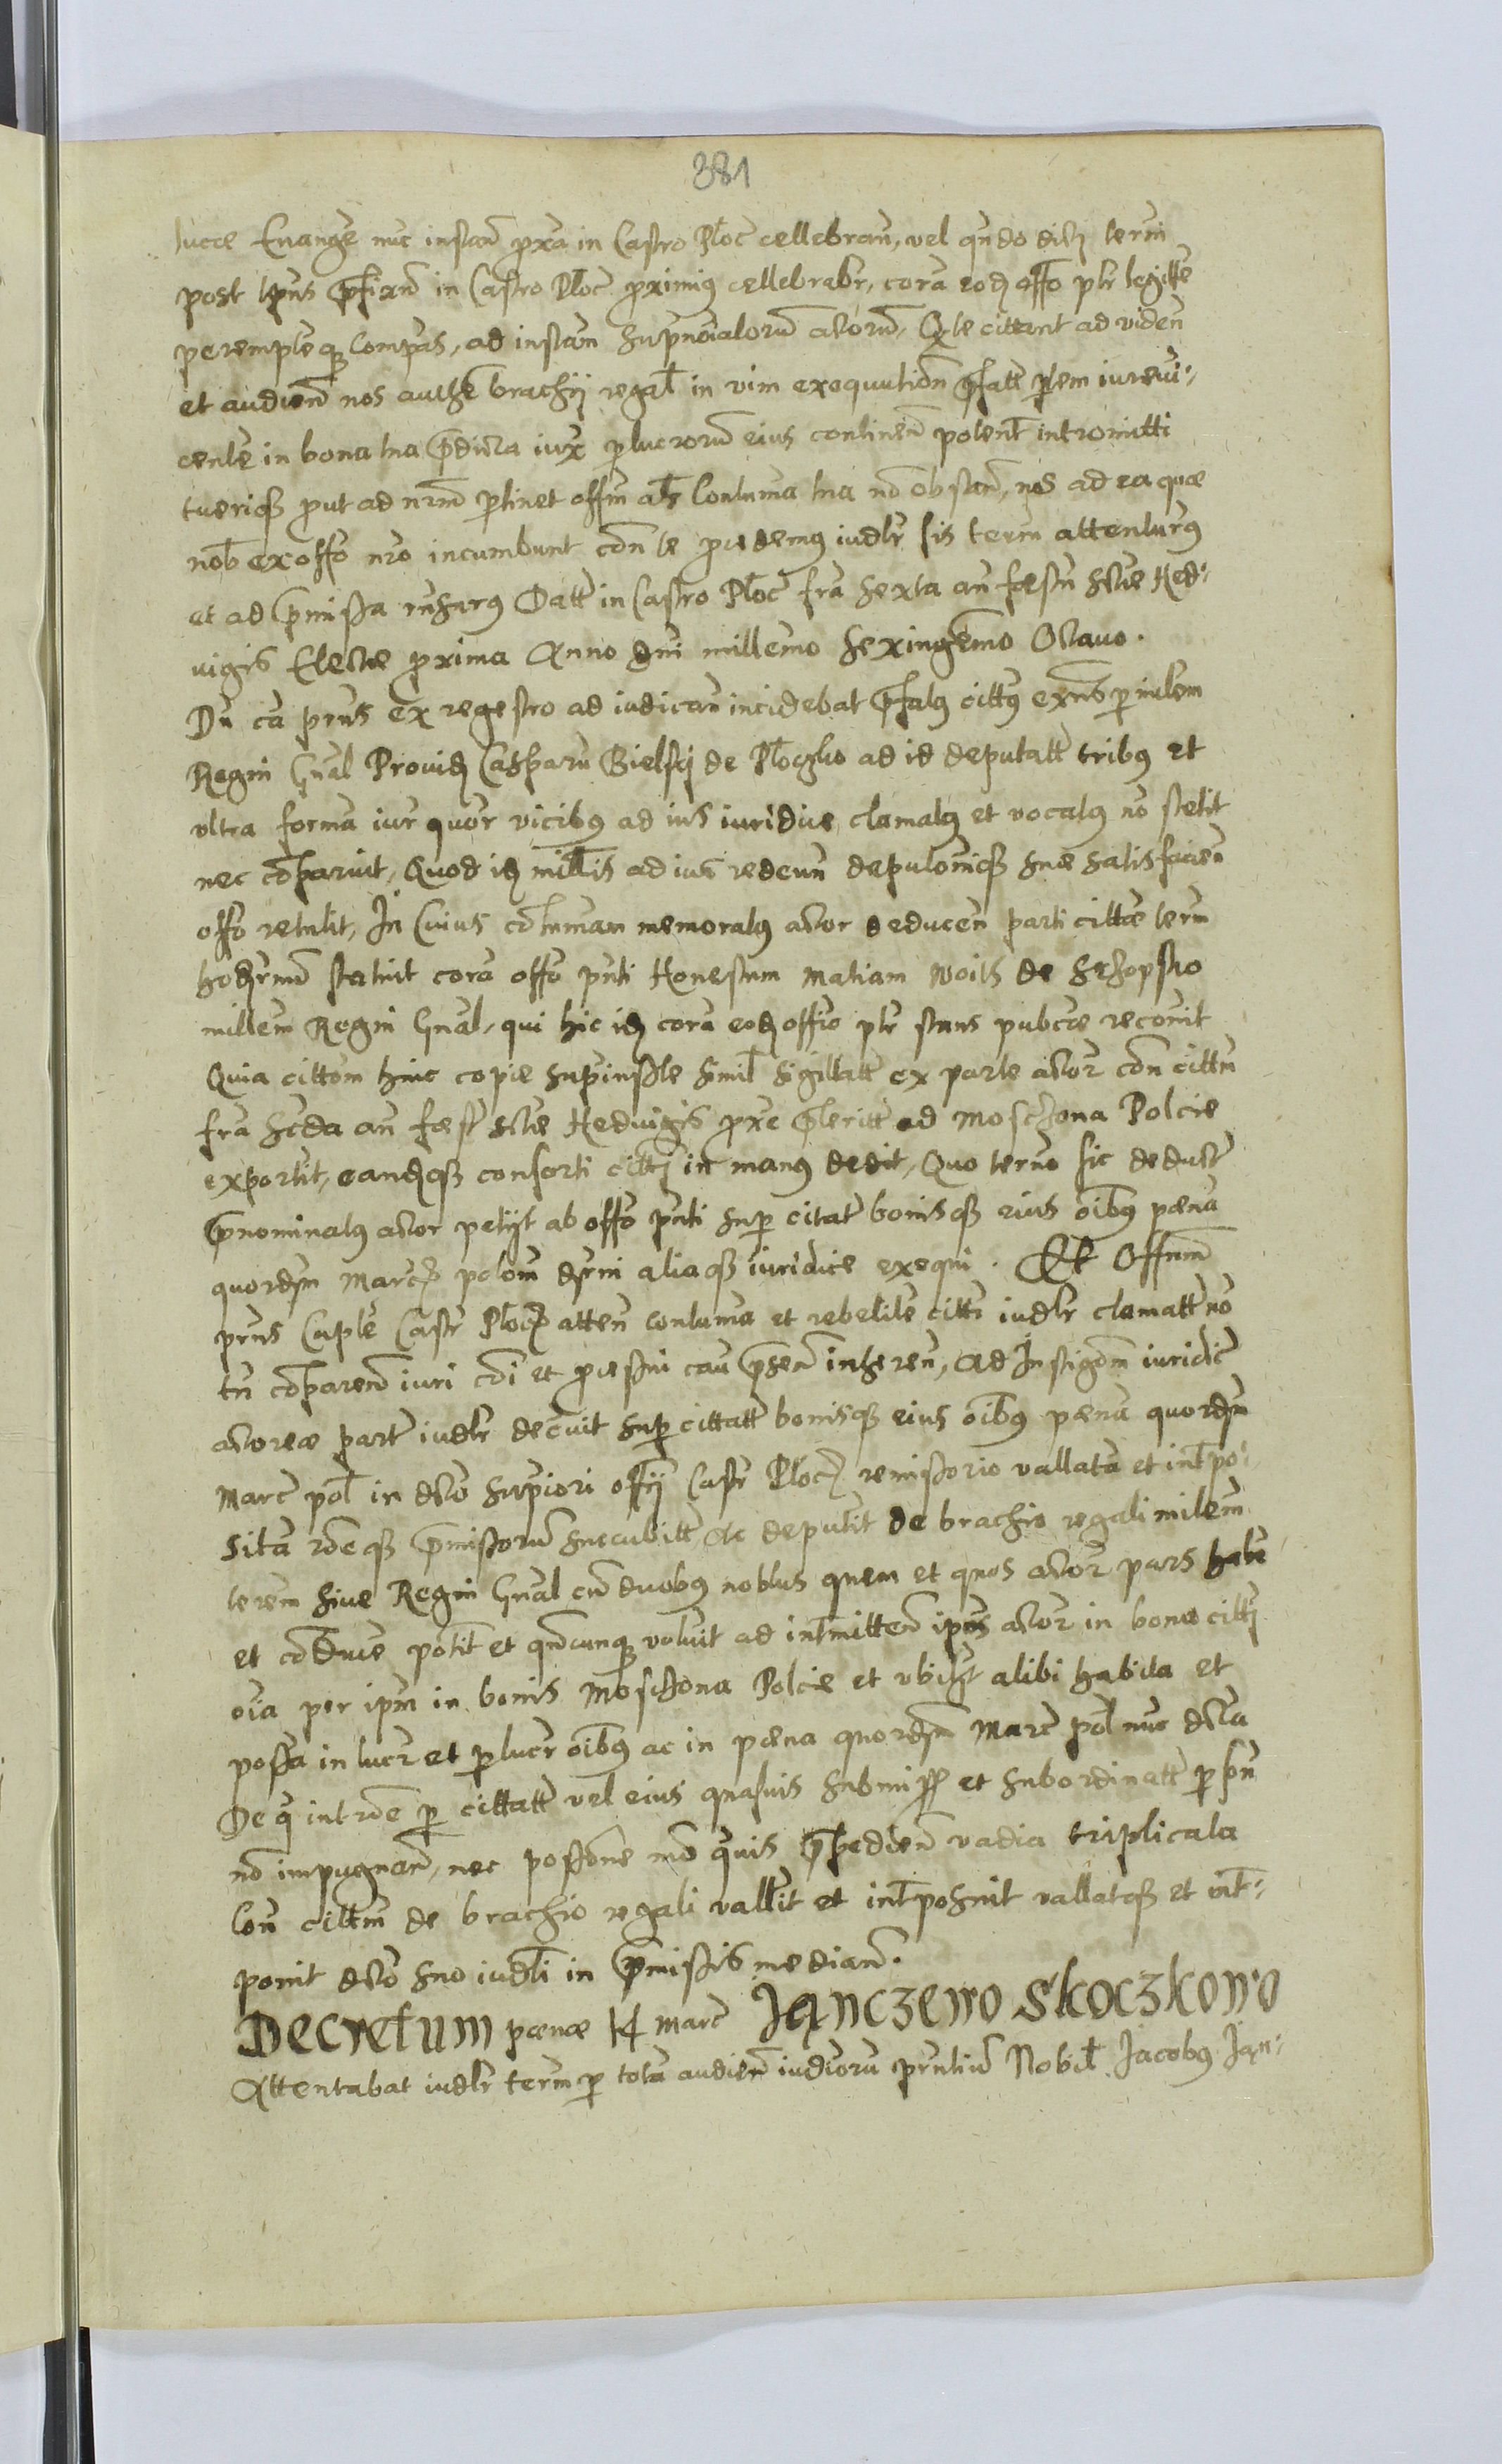 381
lucae Evange nuc instan proxa in Castro Ploc cellebran, vel qundo dicti termi
post tpus prfixu in Castro Ploc proximis cellebrabr, cora eod offo pltr legitte
peremptesq compas, ad instam supnoialorum actorum, Q te cittant ad viden
et audien nos authe brachij regal in vim exequution prfatt ptem iurevi-
cente in bona tua prdicta iux plucrorum eius continen potent intromitti
tueriq prout ad nrm ptinet offm als Contuma tua no obstan, nos ad ea quae
nob ex offo nro incumbunt con te procedemus iudlr sis term attenturus
et ad praemissa rnsurus Datt in Castro Ploc fra sexta an festu sctae Hed-
vigis Electae proxima Anno dni millemo sexingemo Octavo.
Du ca prns ex regestro ad iudican incidebat prfatus cittus exns p mlem
Regni Gnal Provid Casparu Bielski de Ploczko ad id deputatt tribus et
ultra forma iur quor vicibus ad ius iuridice clamatus et vocatus no stetit
nec comparuit, Quod id millis ad iud redeun deputoniq suae satisfacien
offo retulit, In Cuius contumam memoratus actor deducen parti cittae term
hodiernu statuit cora offo pnti Honestum Matiam Woith de
millem Regni Gnal, qui hic id cora eod offio pltr stans pubcae recovit
Quia cittom hinc copiae suprinsctae simil sigillatt ex parte actor con cittu
fra scda an fest sctae Hedvigis proxe praeteritt ad Mosczona Polcie
exportit, eandq consorti citti in manus dedit, Quo termo sic deduct
prnominatus actor petijt ab offo pnti sup citatt bonisq eius oibus paena
quordm Marcr polom dcerni aliaq iuridice exequi. Et Offium
prns Caple Castr Ploc atten contuma et rebelite citti iudlr clamatt no
tn comparen iuri coi et processui cau prsen inheren, ad Instigom iuridic
actoreae part iudlr decrevit sup cittatt bonisq eius oibus paena quordm
Marc pol in dcto supiori offij Castr Ploc remissorio vallata et intpo-
sita roneq praemissorum succubitt Ac deputit de brachio regali milem
terem sive Regni Gnal cu duobus noblus quem et quos actor pars habe
et conduce potit et qncunq voluit ad intmitten ipus actor in bona citti
oia per ipm in bonis Mosczona Polcie et ubivis alibi habita et
possa in lucr et plucr oibus ac in paena quordm Marc pol nuc dcta
De q introe p cittatt vel eius quasvis submiss et subordinatt pson
no impugnan, nec possone mo quis prpedien vadia triplicata
Con cittm de brachio regali vallit et intposuit vallatq et int-
ponit dcto suo iudli in praemissis median.
Decretum paenae 14 Marc Janczewo Skoczkowo
Attentabat iudlr term p tota audien iudiciorum prntium Nobil Jacobus Jan-